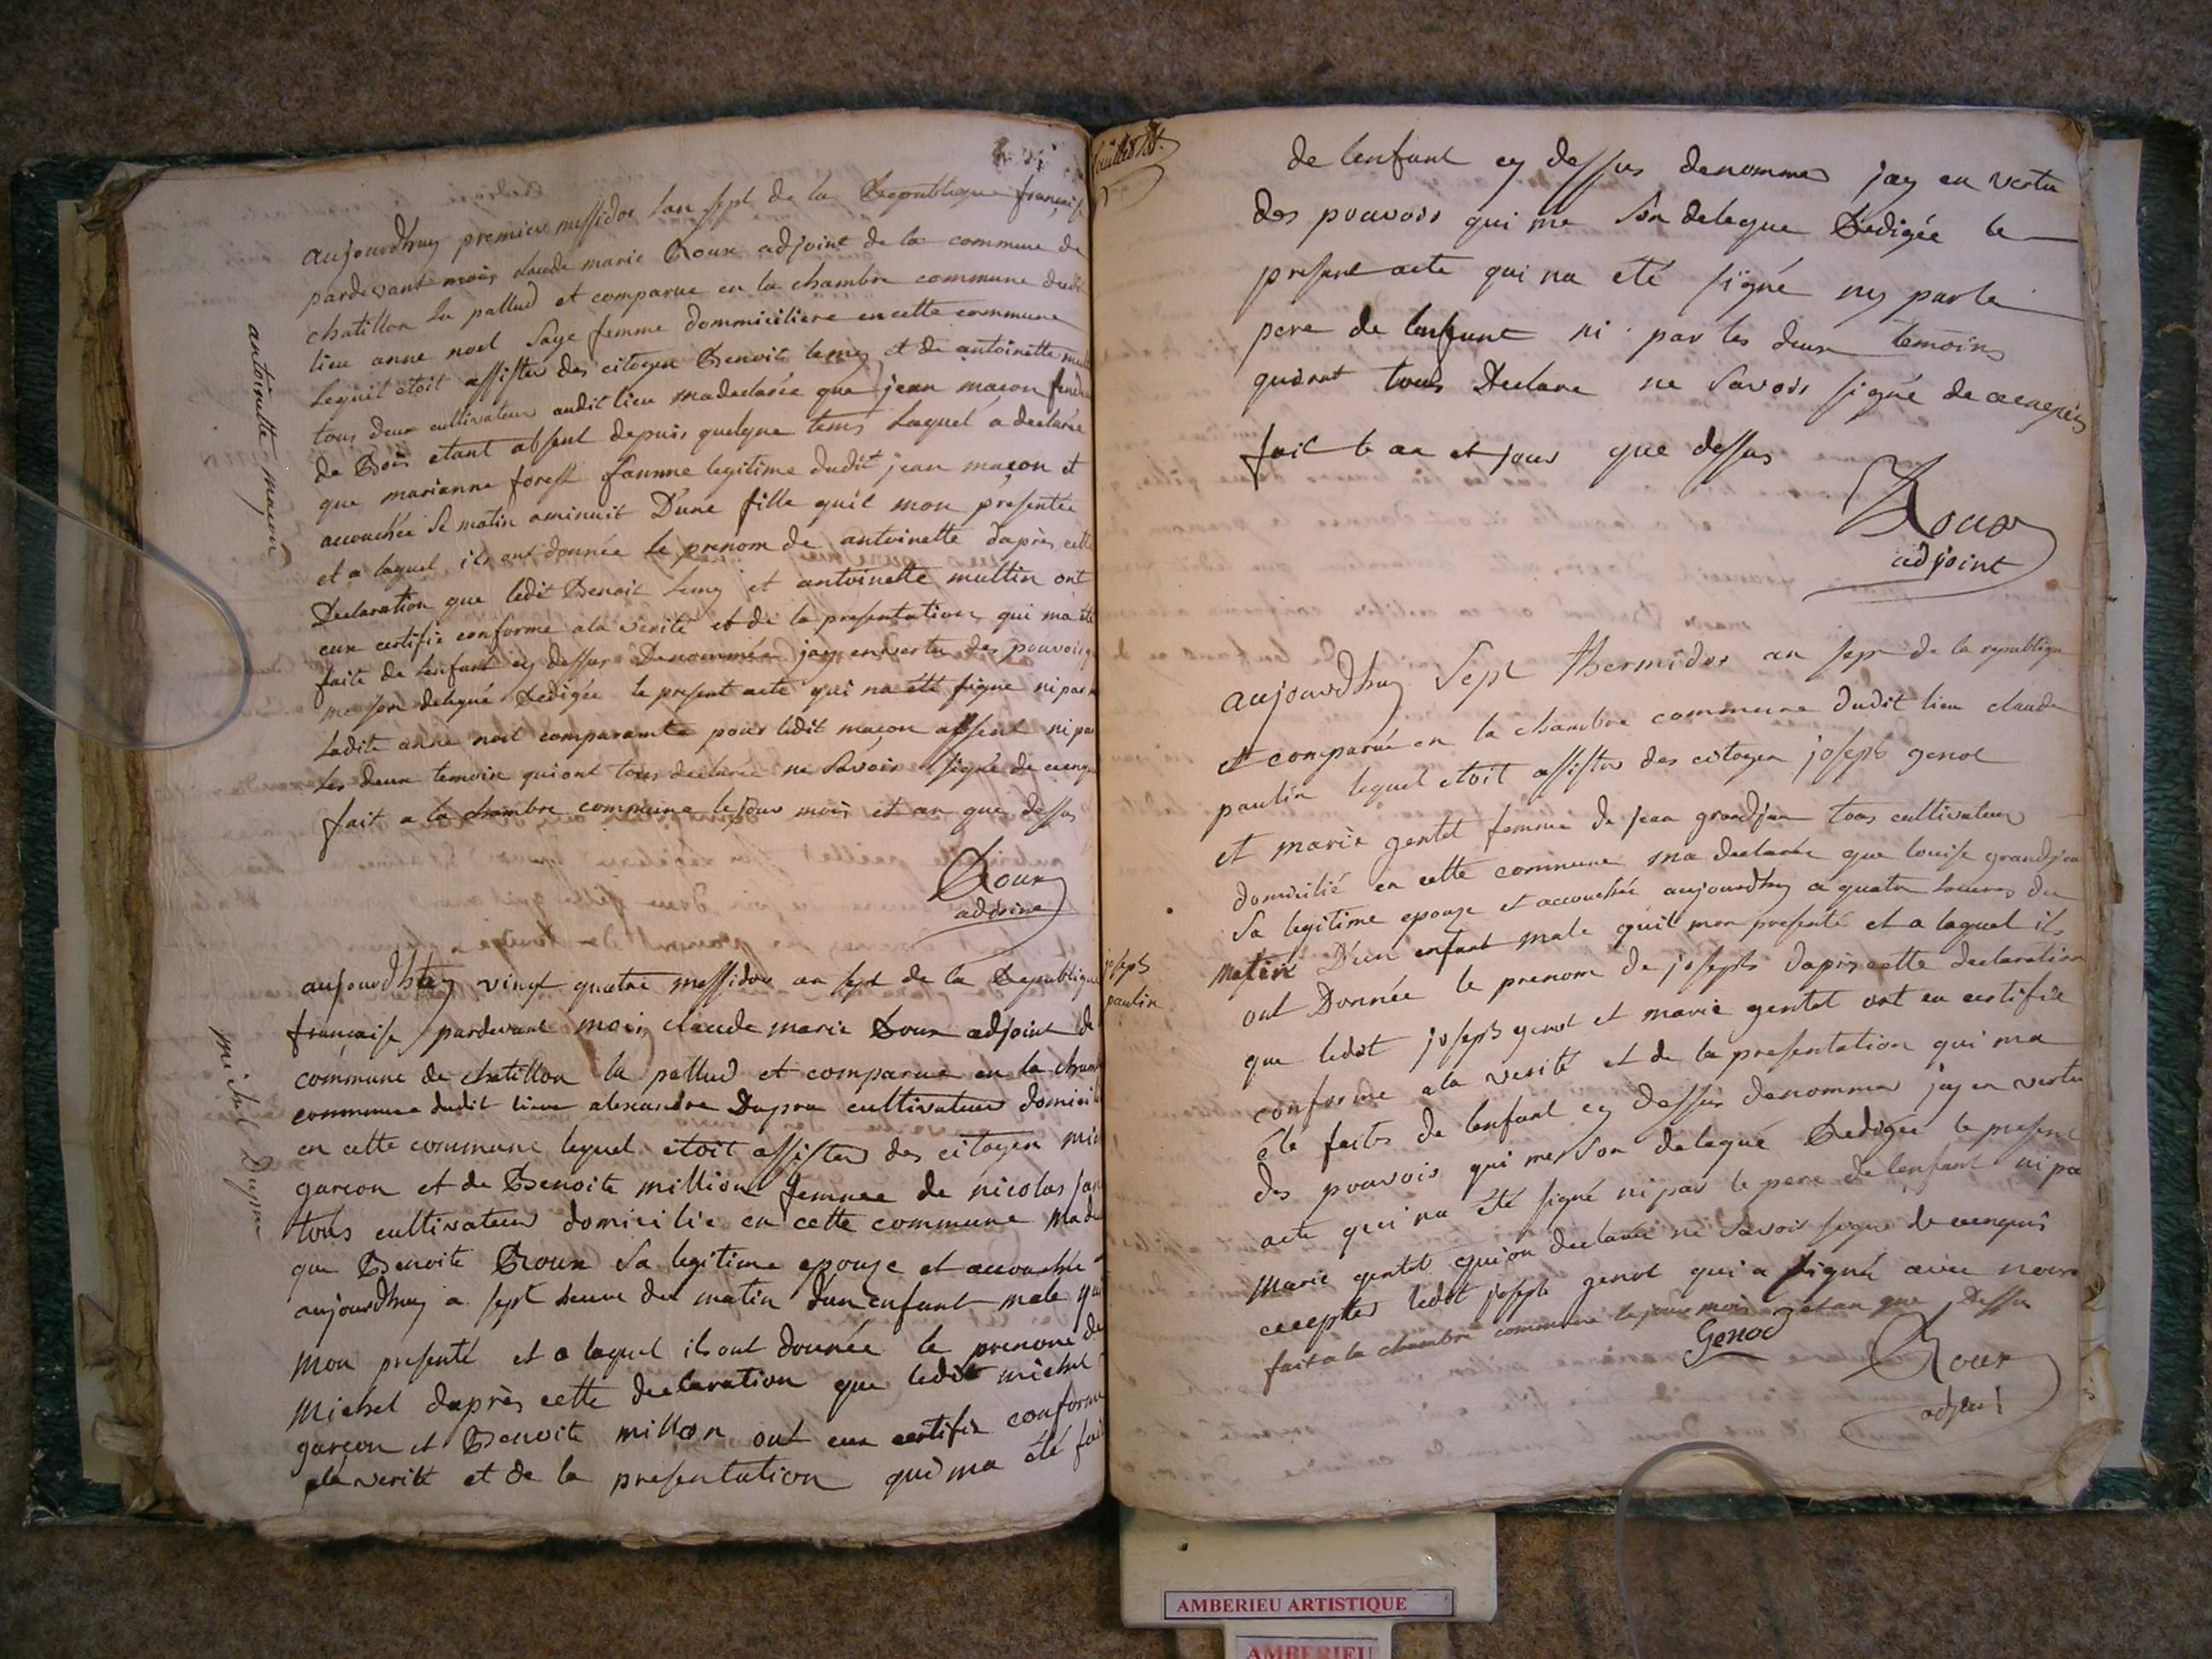 aujourdhuy premier messidor lan sept de la Republique françaisse
pardevant moiy claude marie Roux adjoint de la commune de
chatillon la pallud et comparue en la chambre commune dudit
lieu anne noel sage femme dommiciliere en cette commune
Lequil etoit assister des citoyen Benoit et de antoinette
tous deux cultivateur audit lieu madeclarée que jean maçon fendeur
de Bois etant absent depuis quelque tems Laquel a declarée
que marianne forest famme legitime dudit jean maçon et
accouchée se matin aminuit D'une fille quil mon presentée
et a laquel ils ont donnée le prenom de antoinette daprès cette
Declaration que ledit Benoit et antoinette multin ont
eux certifie conforme ala verité et de la presentation qui ma été
faite de Lenfant cy dessus Denommée jay envertu des pouvoirs
me son delegué Redigée le present acte qui na été signe ni par
Ladite anne noel comparante pour ledit maçon assent ni par
Les deux temoin qui ont tous declarée ne Savoir signé de ce enquis
fait a la chambre commune le jour mois et an que dessus
Roux
adjoint
antoinette maçon
aujourdhuy vingt quatre messidor an sept de la Republique
française pardevant moiy claude marie Roux adjoint de
commune de chatillon la pallud et comparue en la chambre
commune dudit lieux alexandre Dupra cultivateur domicilié
en cette commune lequel etoit assister des citoyen mic
garçon et de Benoite million femme de nicolas
tous cultivateur domicilie en cette commune made
que Benoite Roux sa legitime epouze et accouchée
aujourdhuy a sept heure du matin dun enfant male qui
mon presenté et a laquel ils ont donnée le prenom de
Michel daprès cette declaration que ledit michel
garçon et Benoite millon ont eux certifie conforme
ala verité et de la presentation qui ma été fai
michel Dupra
de lenfant cy dessus denommer jay en vertu
des pouvoir qui me son delegue Redigée le
present acte qui na eté signé ny par le
pere de lenfant ni par les deux temoins
qui ont tous Declare ne savoir signé de ce enquis
fait le an et jour que dessus
Roux
adjoint
aujourdhuy Sept thermidor an sept de la republique
et comparue en la chambre commune dudit lieu claude
paulin lequel etoit assister des citoyen joseph genod
et marie gentet femme de jean grandjean tous cultivateur
domicilié en cette commune ma declarée que louise grandjean
Sa legitime epouze et accouchée aujourdhuy a quatre heures du
matin D'un enfant male quil mon presenté et a laquel ils
ont Donnée le prenom de joseph daprès cette declaration
que ledit joseph genod et marie gentet ont eu certifie
conforme ala verité et de la presentation qui ma
été faites de lenfant cy dessus denommer jay en vertu
des pouvoir qui me son delegué Redigée le present
acte qui na été signé ni par le pere de lenfant ni pa
Marie gentet qui on declarée ne savoir signe de ce enquis
excepter ledit joseph genod qui a signé avec nous
fait a la chambre commune le jour mois et an que Dessus
Genod
Roux
adjoint
joseph
paulin
AMBERIEU ARTISTIQUE
AMBERIEU